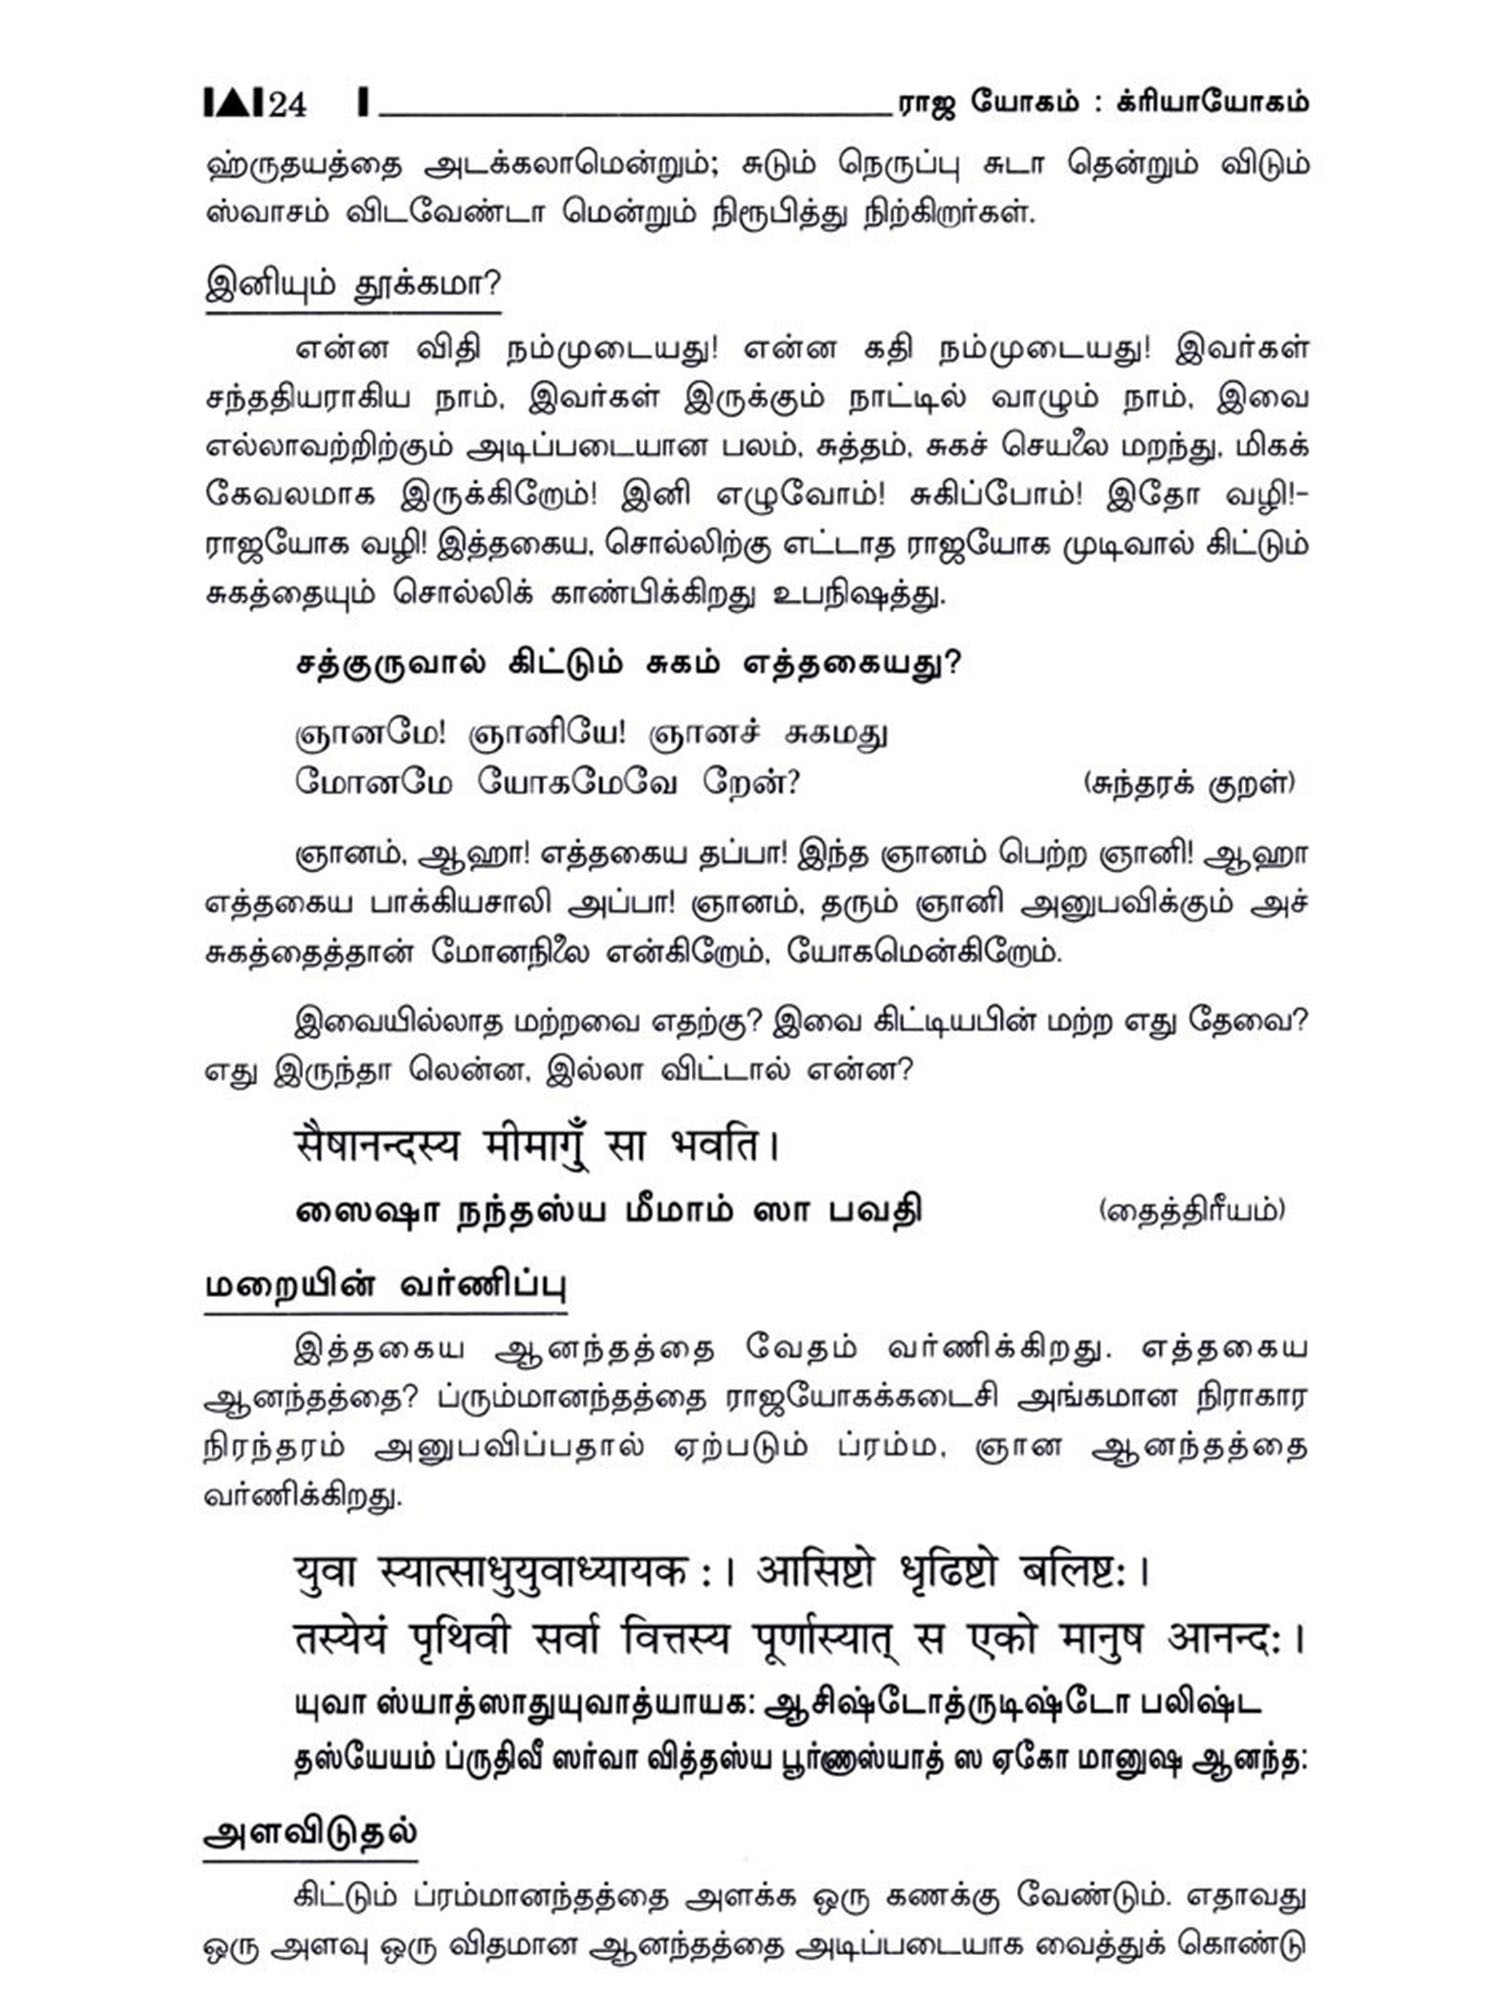 24
ராஜ யோகம் : க்ரியாயோகம்
ஹ்ருதயத்தை அடக்கலாமென்றும்; சுடும் நெருப்பு சுடா தென்றும் விடும்
ஸ்வாசம் விடவேண்டா மென்றும் நிரூபித்து நிற்கிறார்கள்.
இனியும் தூக்கமா?
என்ன விதி நம்முடையது! என்ன கதி நம்முடையது! இவர்கள்
சந்ததியராகிய நாம், இவர்கள் இருக்கும் நாட்டில் வாழும் நாம், இவை
எல்லாவற்றிற்கும் அடிப்படையான பலம், சுத்தம், சுகச் செயலை மறந்து, மிகக்
கேவலமாக இருக்கிறோம்! இனி எழுவோம்! சுகிப்போம்! இதோ வழி!-
ராஜயோக வழி! இத்தகைய, சொல்லிற்கு எட்டாத ராஜயோக முடிவால் கிட்டும்
சுகத்தையும் சொல்லிக் காண்பிக்கிறது உபநிஷத்து.
சத்குருவால் கிட்டும் சுகம் எத்தகையது?
ஞானமே! ஞானியே! ஞானச் சுகமது
மோனமே யோகமேவே றேன்? (சுந்தரக் குறள்)
ஞானம், ஆஹா! எத்தகைய தப்பா! இந்த ஞானம் பெற்ற ஞானி! ஆஹா
எத்தகைய பாக்கியசாலி அப்பா! ஞானம், தரும் ஞானி அனுபவிக்கும் அச்
சுகத்தைத்தான் மோனநிலை என்கிறோம், யோகமென்கிறோம்.
இவையில்லாத மற்றவை எதற்கு? இவை கிட்டியபின் மற்ற எது தேவை?
எது இருந்தா லென்ன, இல்லா விட்டால் என்ன?
सैषानन्दस्य मीमागुँ सा भवति।
ஸைஷா நந்தஸ்ய மீமாம் ஸா பவதி (தைத்திரீயம்)
மறையின் வர்ணிப்பு
இத்தகைய ஆனந்தத்தை வேதம் வர்ணிக்கிறது. எத்தகைய
ஆனந்தத்தை? ப்ரும்மானந்தத்தை ராஜயோகக்கடைசி அங்கமான நிராகார
நிரந்தரம் அனுபவிப்பதால் ஏற்படும் ப்ரம்ம, ஞான ஆனந்தத்தை
வர்ணிக்கிறது.
युवा स्यात्साधुयुवाध्यायक :। आसिष्टो धृढिष्टो बलिष्टः।
तस्येयं पृथिवी सर्वा वित्तस्य पूर्णास्यात् स एको मानुष आनन्दः।
யுவா ஸ்யாத்ஸாதுயுவாத்யாயக: ஆசிஷ்டோத்ருடிஷ்டோ பலிஷ்ட
தஸ்யேயம் ப்ருதிவீ ஸர்வா வித்தஸ்ய பூர்ணாஸ்யாத் ஸ ஏகோ மானுஷ ஆனந்த:
அளவிடுதல்
கிட்டும் ப்ரம்மானந்தத்தை அளக்க ஒரு கணக்கு வேண்டும். எதாவது
ஒரு அளவு ஒரு விதமான ஆனந்தத்தை அடிப்படையாக வைத்துக் கொண்டு